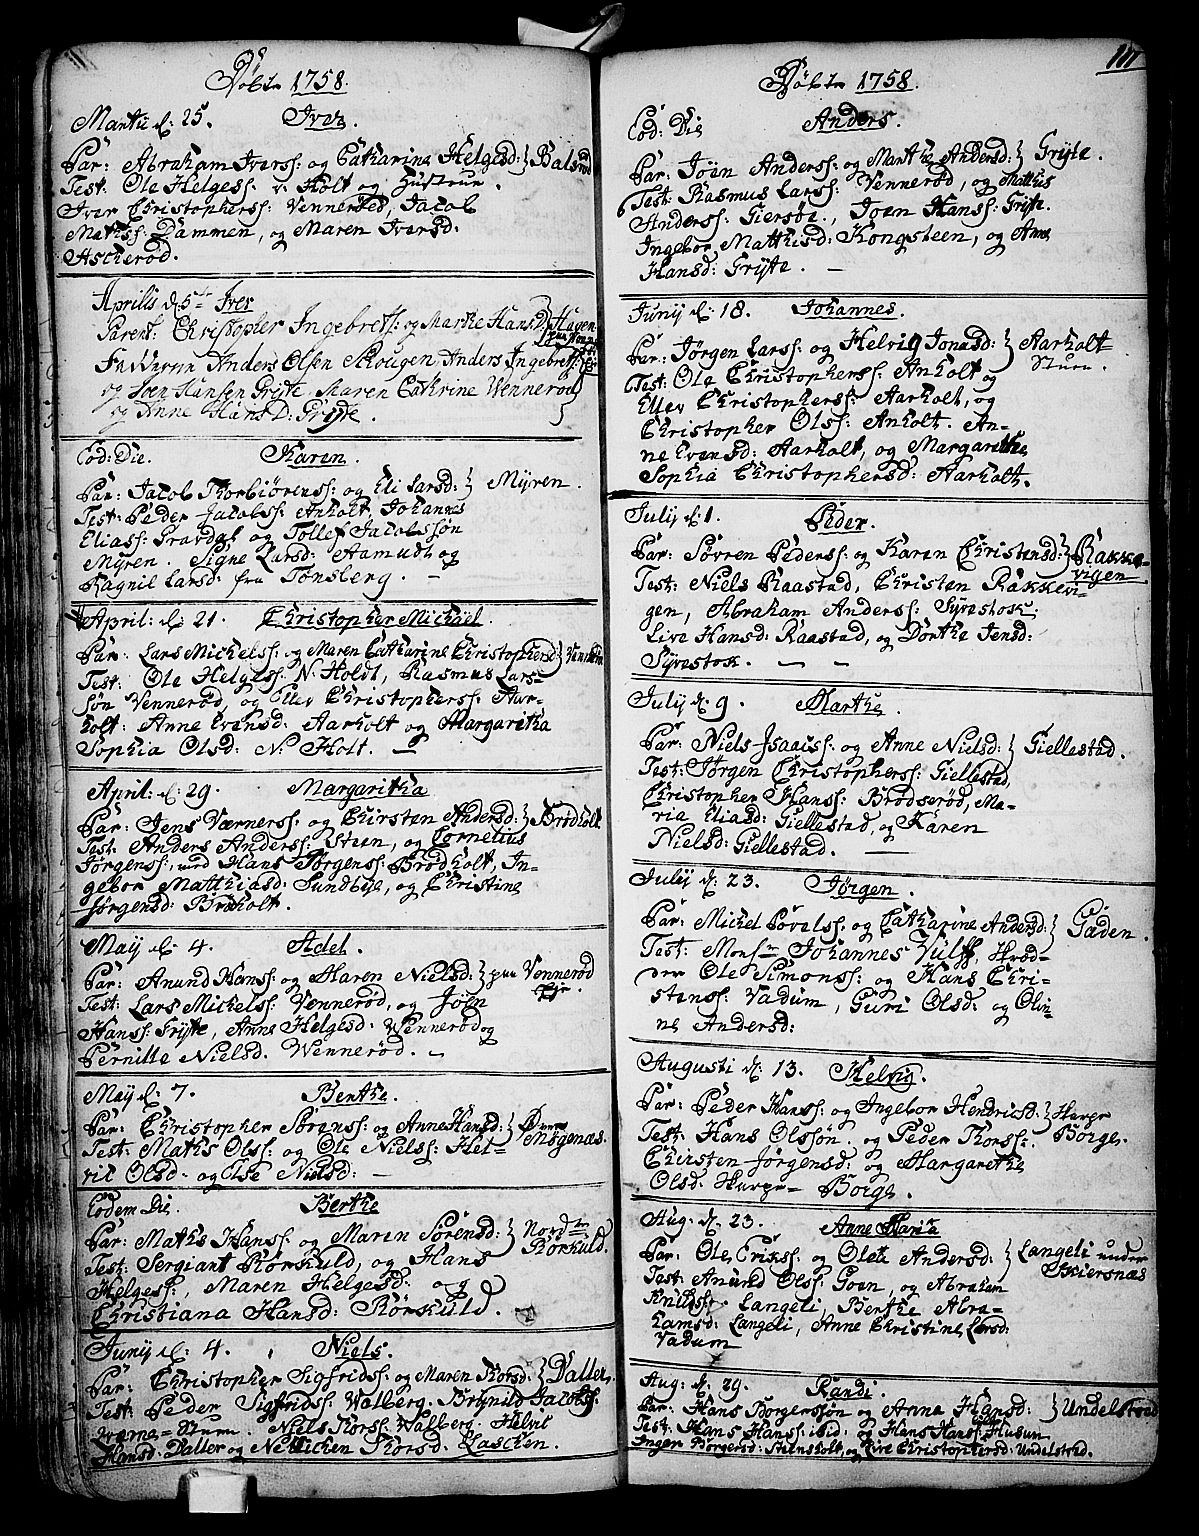 Døbte 1758.
Martii d: 25. Iver.
Par: Abraham Iverss: og Catharina Helgesd: Balsrød
Test: Ole Helgess: v. Holt og Hustrue.
Iver Christopherss: Vennerød, Jacob
Mathss: Dammen, og Maren Iversd:
Ascherød.
Aprilis d. 5te Iver
Parent: Christopher Ingebretss: og Marthe Hansd: Hagen
Fadderne Anders Olsen Skougen, Anders Ingebretss:
og Joen Hansen Gryte, Maren Cathrine Wennerød
og Anne Hans D: Gryte.
Eod: Die. Karen.
Par: Jacob Thorbiørenss: og Eli Larsd: Myren.
Test: Peder Jacobss: Anholt, Johannes
Eliass: Gravdal og Tollef Jacobssøn
Myren. Signe Larsd: Aamudt og
Ragnil Larsd: fra Tønsberg. —
April: d: 21. Christopher Michäel.
Par: Lars Michelss: og Maren Catharine Christophersd:
Test: Ole Helgess: N. Holdt, Rasmus Lars-
søn Vennerød, og Ellev Christopherss: Aar-
holt: Anne Evensd: Aarholt og Margaritha
Sophia Olsd: N. Holt. —
April: d: 29. Margaritha
Par: Jens Værnerss: og Chirsten Andersd: Brødholt
Test: Anders Anderss: Steen, og Cornelius
Jørgenss:, und Hans Jørgenss: Brødholt, In-
gebor Matthiasd: Sundbye, og Christine
Jørgensd: Brøholt.
Maij d: 4. Adel.
Par: Anund Hanss: og Maren Nielsd: paa Vennerød
Eje.
Test: Lars Michelss: Vennerød, og Joen
Hanss: Gryte, Anne Helgesd: Wennerød og
Pernille Nielsd. Wennerød. —
Maij d: 7. Berthe.
Par: Christopher Sørenss: og Anne Hansd:
Mogenæs.
Test: Maths Olss: og Ole Nielss: Hel-
vil Olsd: og Else Nielsd: —
Eodem Die. Berthe
Par: Maths Hanss: og Maren Sørensd: Nordre
Rørkuld.
Test: Sergiant Rørkuld, og Hans
Helgess:, Maren Helgesd: og
Christiana Hansd: Rørkuld.
Junij d: 4. Niels.
Par: Christopher Sigfridss: og Maren Thorsd: Daller.
Test: Peder Sigfridss: Walberg. Brynild Jacobss:
Sturu. Niels Thorss: Walberg. Helvil
Hansd: Daller og Thorsd: Laschen.
111
Døbte 1758.
Eod: Die Anders.
Par: Joen Anderss: og Marthe Andersd: Gryte.
Test: Rasmus Larss: Vennerød, og Mathis
Anderss: Giersøe., Joen Hanss: Gryte.
Ingebor Matthisd: Kongsteen, og Anne
Hansd: Gryte. —
Junij d: 18. Johannes.
Par: Jørgen Larss: og Helvig Jonasd: Aarholt
Sturu.
Test: Ole Christopherss: Anholt og
Ellev Christopherss: Aarholt, og
Christopher Olss: Anholt. An-
ne Evensd: Aarholt, og Margarithe
Sophia Christophersd: Aarholt.
Julij d: 1. Peder.
Par: Søvren Pederss: og Karen Christensd: Rakke-
vigen
Test: Niels Raastad, Christen Rakkevi-
gen, Abraham Anderss: Syvestok.
Live Hansd: Raastad, og Dorthe Jensd:
Syvestok. — —
Julij d: 9. Marthe.
Par: Niels Isaacss: og Anne Nielsd: Giellestad.
Test: Jørgen Christopherss: Giellestad,
Christopher Hanss: Brødserød, Ma-
ria Eliasd: Giellestad, og Karen
Nielsd: Giellestad. —
Julij d: 23. Jørgen.
Par: Michel Povelss: og Catharine Andersd: Gaden.
Test: Monsr Johannes Vulff,
Ole Simonss: og Hans Chri-
stenss: Vadum, Guri Olsd: og Olvi-
ne Andersd:
Augusti d: 13. Helvig.
Par: Peder Hanss: og Ingebor Hendricsd: Harpe
Borge.
Test: Hans Olssøn. og Peder Thorss:.
Chirsten Jørgensd: og Margarethe
Olsd: Harpe- Borge.
Aug: d: 23. Anne Maria
Par: Ole Erikss: og Olea Andersd: Langeli under
Skiersnæs
Test: Anund Olss: Goen, og Abraham
Knudss: Langeli, Berthe Abra-
hamsd: Langeli, Anne Christine Larsd:
Vadum
Aug: d: 29. Randi.
Par: Hans Borgerssøn og Anna Hansd: Undelstad
Test: Hans Hanss: ibid: og Hans Hanss: Husum
Inger Borgersd: Steensholt, og Live Christophersd: Undelstad.